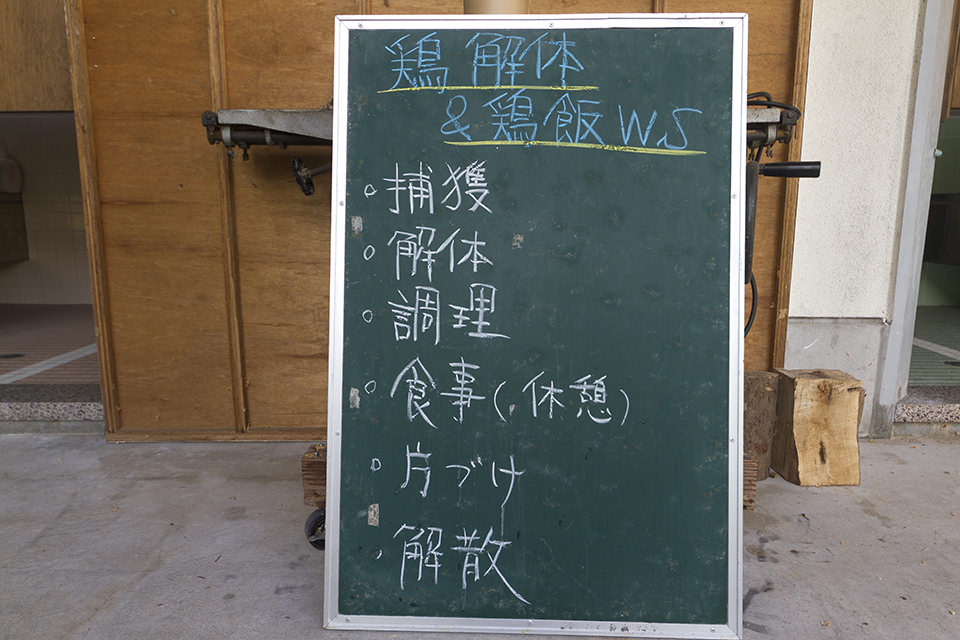 鶏解体
&鶏飯WS
○捕獲
○解体
○調理
○食事(休憩)
○片づけ
○解散